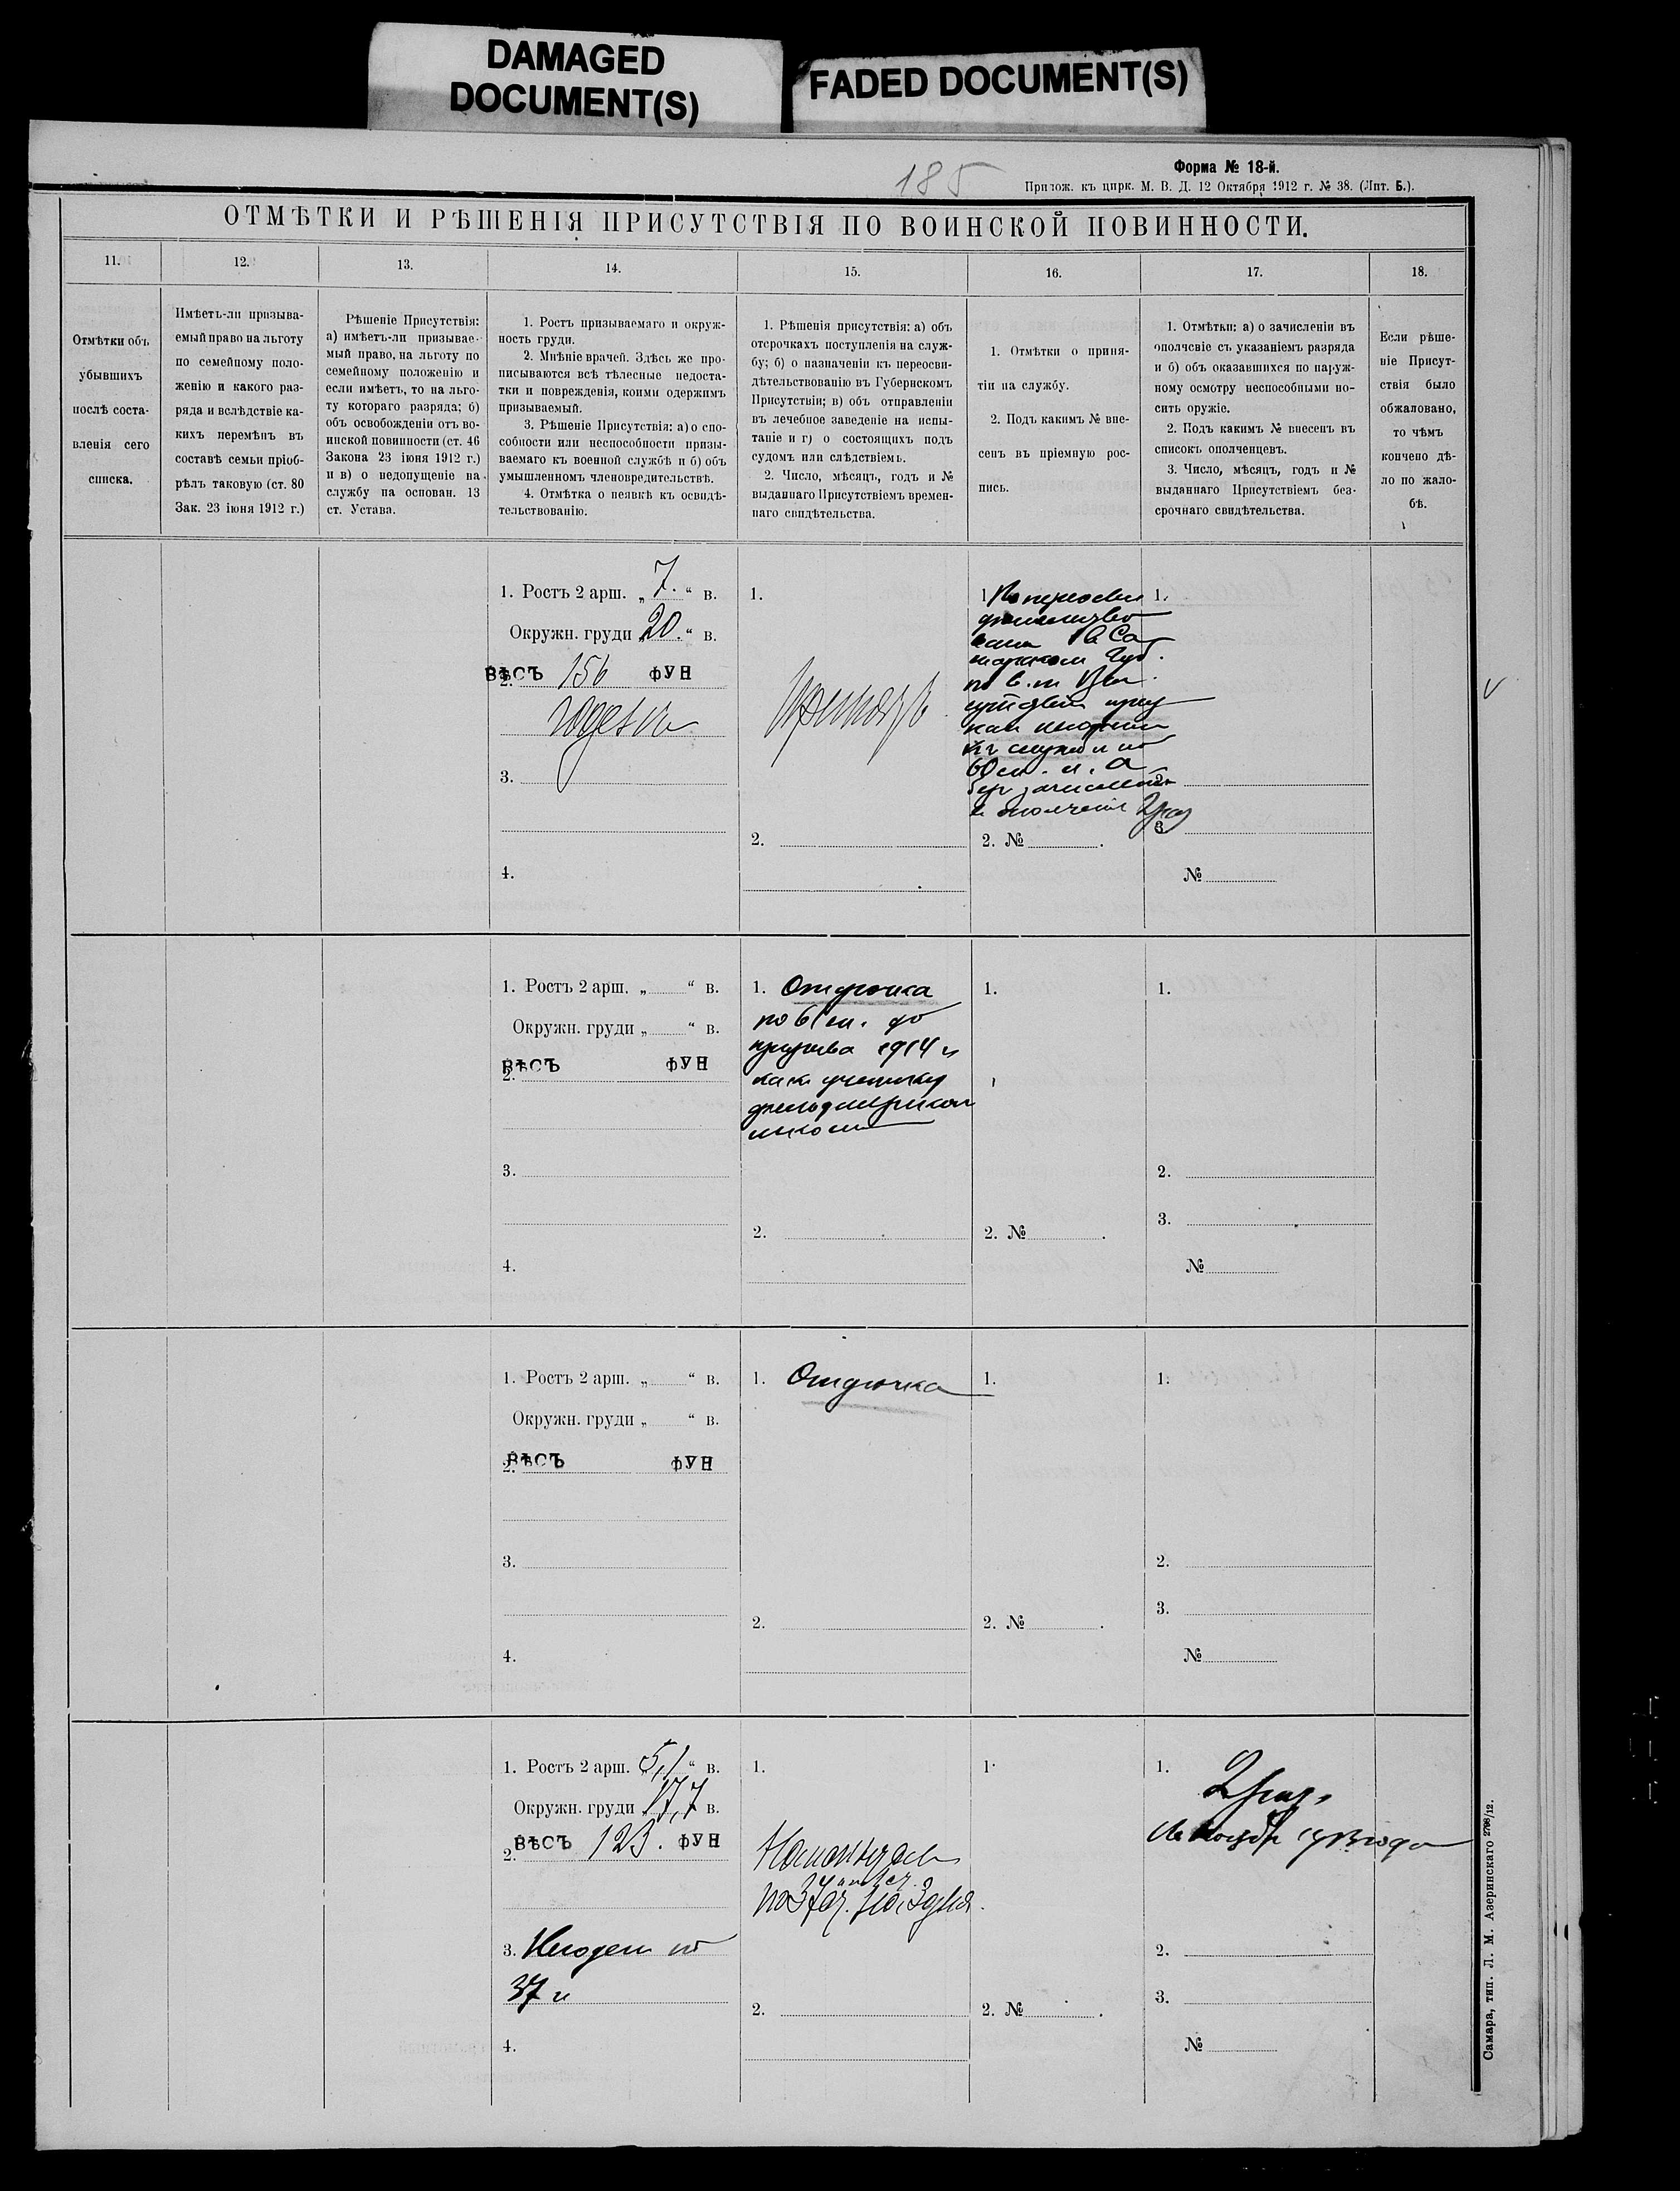 DAMAGED
DOCUMENT(S)
FADED DOCUMENT(S)
185
Форма № 18-й.
Прилож. къ цирк. М. В. Д. 12 Октября 1912 г. № 38. (Лит. Б.).
ОТМѢТКИ И РѢШЕНІЯ ПРИСУТСТВІЯ ПО ВОИНСКОЙ ПОВИННОСТИ.
11.
12.
13.
14.
15.
16.
17.
18.
Отмѣтки объ
убывшихъ
послѣ соста-
вленія сего
списка.
Имѣетъ-ли призыва-
емый право на льготу
по семейному поло-
женію и какого раз-
ряда и вслѣдствіе ка-
кихъ перемѣнъ въ
составѣ семьи пріоб-
рѣлъ таковую (ст. 80
Зак. 23 іюня 1912 г.)
Рѣшеніе Присутствія:
а) имѣетъ-ли призывае-
мый право, на льготу по
семейному положенію и
если имѣетъ, то на льго-
ту котораго разряда; б)
объ освобожденіи отъ во-
инской повинности (ст. 46
Закона 23 іюня 1912 г.)
и в) о недопущеніе на
службу на основан. 13
ст. Устава.
1. Ростъ призываемаго и окруж-
ность груди.
2. Мнѣніе врачей. Здѣсь же про-
писываются всѣ тѣлесные недоста-
тки и поврежденія, коими одержимъ
призываемый.
3. Рѣшеніе Присутствія: а) о спо-
собности или неспособности призы-
ваемаго къ военной службѣ и б) объ
умышленномъ членовредительствѣ.
4. Отмѣтка о неявкѣ къ освидѣ-
тельствованію.
1. Рѣшенія присутствія: а) объ
отсрочкахъ поступленія на служ-
бу; б) о назначеніи къ переосви-
дѣтельствованію въ Губернскомъ
Присутствіи; в) объ отправленіи
въ лечебное заведеніе на испы-
таніе и г) о состоящихъ подъ
судомъ или слѣдствіемъ.
2. Число, мѣсяцъ, годъ и №
выданнаго Присутствіемъ времен-
наго свидѣтельства.
1. Отмѣтки о приня-
тіи на службу.
2. Подъ какимъ № вне-
сенъ въ пріемную рос-
пись.
1. Отмѣтки: а) о зачисленіи въ
ополченіе съ указаніемъ разряда
и б) объ оказавшихся по наруж-
ному осмотру неспособными но-
сить оружіе.
2. Подъ какимъ № внесенъ въ
списокъ ополченцевъ.
3. Число, мѣсяцъ, годъ и №
выданнаго Присутствіемъ без-
срочнаго свидѣтельства.
Если рѣше-
ніе Присут-
ствія было
обжаловано,
то чѣмъ
кончено дѣ-
ло по жало-
бѣ.
1. Ростъ 2 арш. „ 7. “ в.
Окружн. груди „ 20. “ в.
ВѢСЪ 156 ФУН
2.
годенъ
3.
4.
1.
Принятъ
2.
1.
в Са
марском Губ.
по в. п.
к службе по
в ополчение 2 раз
2. №
1.
2.
3.
№
1. Ростъ 2 арш. „ “ в.
Окружн. груди „ “ в.
ВѢСЪ ФУН
2.
3.
4.
1. Отсрочка
по 61 ст. до
призыва 1914 г
как ученику
2.
1.
2. №
1.
2.
3.
№
1. Ростъ 2 арш. „ “ в.
Окружн. груди „ “ в.
ВѢСЪ ФУН
2.
3.
4.
1. Отсрочка
2.
1.
2. №
1.
2.
3.
№
1. Ростъ 2 арш. „ 5,1 “ в.
Окружн. груди „ 17,7 в.
ВѢСЪ 123. ФУН
2.
3. Негоден по
37 л
4.
1.
2.
1.
2. №
1.
2 раз.
2.
3.
№
Самара, тип. Л. М. Азеринскаго 2798/12.